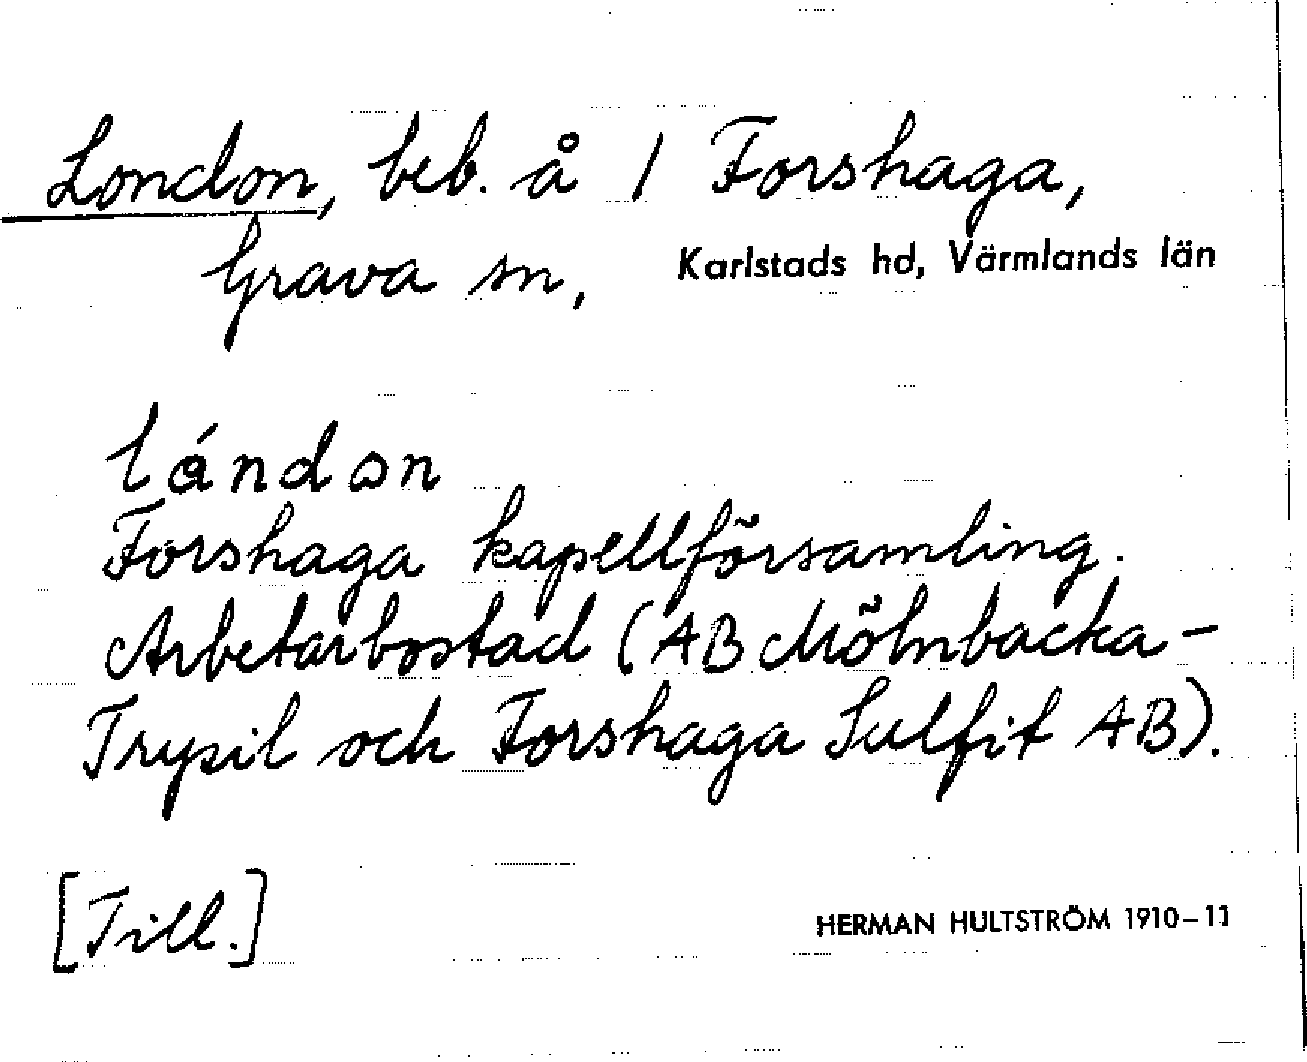 London, beb. å 1 Forshaga,
Grava sn, Karlstads hd, Värmlands län
lándon
Forshaga kapellförsamling.
Arbetarbostad (AB Mölnbacka-
Trysil och Forshaga Sulfit AB).
[Till.] HERMAN HULTSTRÖM 1910–11